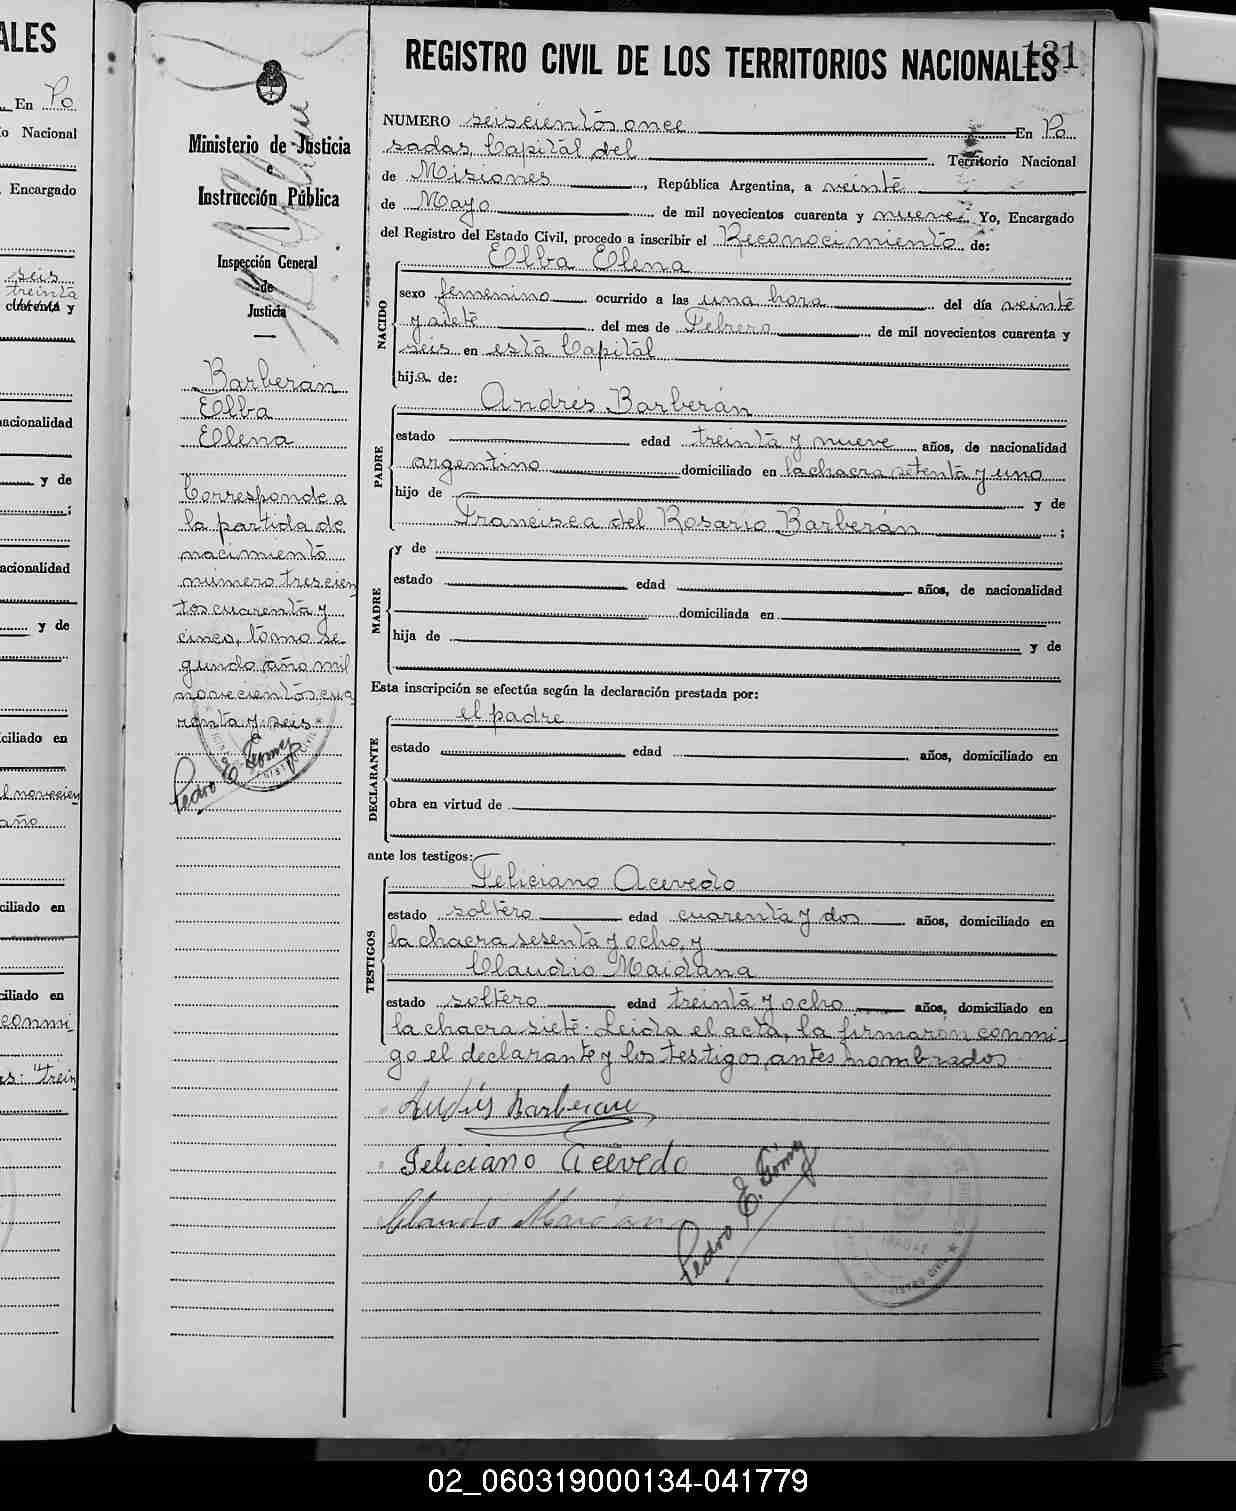 ALES
En Po
o Nacional
Encargado
seis
treinta
cuarenta y
nacionalidad
y de
acionalidad
y de
ciliado en
l novecien
año
ciliado en
ciliado en
conmi
as: trein
Ministerio de Justicia
e
Instrucción Pública
Inspección General
de
Justicia
Barberán
Elba
Elena
Corresponde a
la partida de
nacimiento
número trescien
tos cuarenta y
cinco, tomo se
gundo año mil
novecientos cua
renta y seis
Pedro E. Gómez
REGISTRO CIVIL DE LOS TERRITORIOS NACIONALES
131
NUMERO seiscientos once En Po
sadas, Capital del Territorio Nacional
de Misiones, República Argentina, a veinte
de Mayo de mil novecientos cuarenta y nueve. Yo, Encargado
del Registro del Estado Civil, procedo a inscribir el Reconocimiento de:
NACIDO
Elba Elena
sexo femenino ocurrido a las una hora del día veinte
y siete del mes de Febrero de mil novecientos cuarenta y
seis en esta Capital
hija de:
PADRE
Andrés Barberán
estado edad treinta y nueve años, de nacionalidad
argentino domiciliado en la chacra setenta y uno
hijo de y de
Francisca del Rosario Barberán ;
MADRE
y de
estado edad años, de nacionalidad
domiciliada en
hija de y de
Esta inscripción se efectúa según la declaración prestada por:
DECLARANTE
el padre
estado edad años, domiciliado en
obra en virtud de
ante los testigos:
TESTIGOS
Feliciano Acevedo
estado soltero edad cuarenta y dos años, domiciliado en
la chacra sesenta y ocho, y
Claudio Maidana
estado soltero edad treinta y ocho años, domiciliado en
la chacra siete. Leida el acta, la firmaron conmi-
go el declarante y los testigos antes nombrados
Andrés Barberan
Feliciano Acevedo
Claudio Maidana
Pedro E. Gómez
02_060319000134-041779